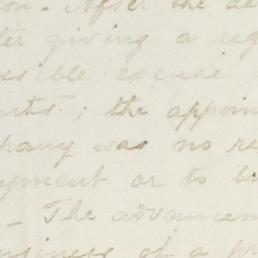 After the de
ter giving a reg
ssible excuse
nts; the appoin
pany was no re
yment or to b
- The advancemen
usiness of a pr